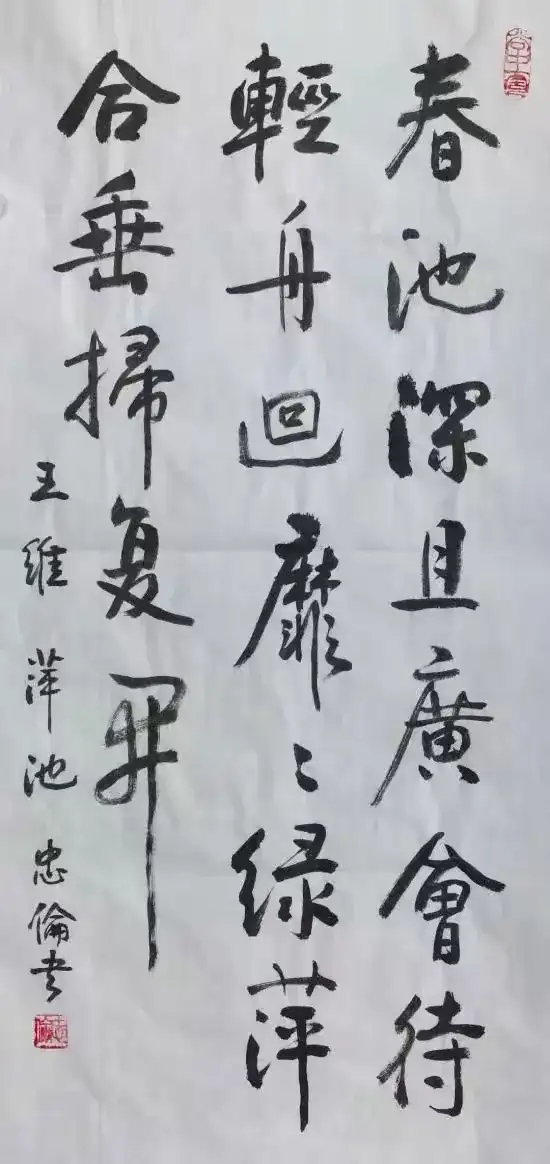 春池深且廣會待
輕舟迴靡〻綠萍
合垂掃复開
王維 萍池 忠倫书